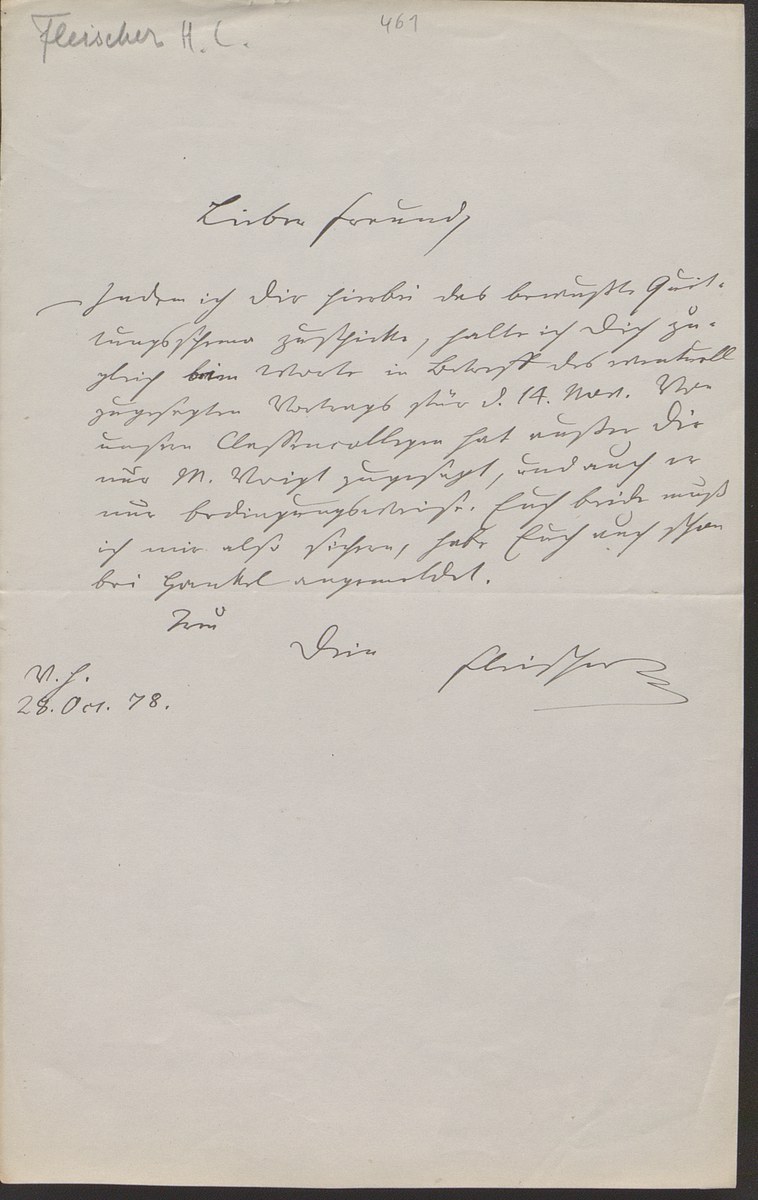 Fleischer H. L.
461
Lieber Freund,
Indem ich Dir hierbei das bewußte Quit-
tungsschema zuschicke, halte ich Dich zu-
gleich beim Worte in Betreff des eventuell
zugesagten Vortrags für d. 14. Nov. Von
unsern Classencollegen hat außer Dir
nur M. Voigt zugesagt, und auch er
nur bedingungsweise. Euch beide muß
ich mir also sichern, habe Euch auch schon
bei Hankel angemeldet.
Treu
Dein Fleischer
V. H.
28. Oct. 78.